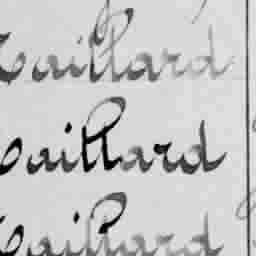 Caillard
Caillard
Caillard